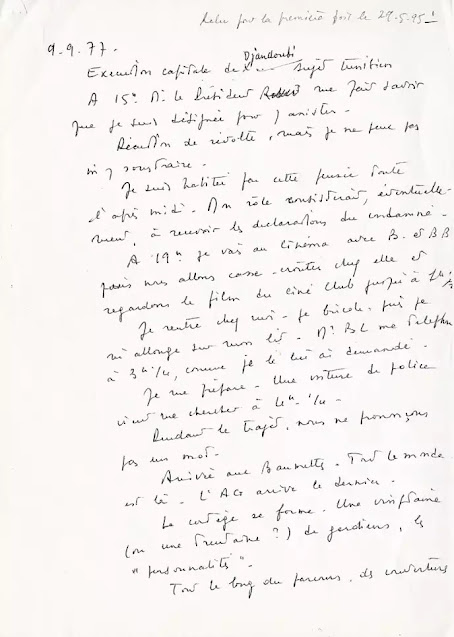 Relu pour la première fois le 29.5.95!
9.9.77.
Djandoubi
Exécution capitale de sujet tunisien
A 15h M. le Président me fait savoir
que je suis désignée pour y assister.
Réaction de révolte, mais je ne peux pas
m'y soustraire.
Je suis habitée par cette pensée toute
l'après midi. Mon rôle consisterait, éventuelle-
ment, à recevoir les déclarations du condamné.
A 19h je vais au cinéma avec B. et BB
puis nous allons casse-croûter chez elle et
regardons le film du ciné club jusqu'à 1h.
Je rentre chez moi - je bricole, puis je
m'allonge sur mon lit - Mr BL me téléphone
à 3h 1/4, comme je le lui ai demandé.
Je me prépare - Une voiture de police
vient me chercher à 4h 1/4 -
Pendant le trajet, nous ne prononçons
pas un mot.
Arrivée aux Baumettes. Tout le monde
est là. L'AG arrive le dernier.
Le cortège se forme. Une vingtaine
(ou une trentaine ?) de gardiens, les
"personnalités".
Tout le long du parcours, des couvertures